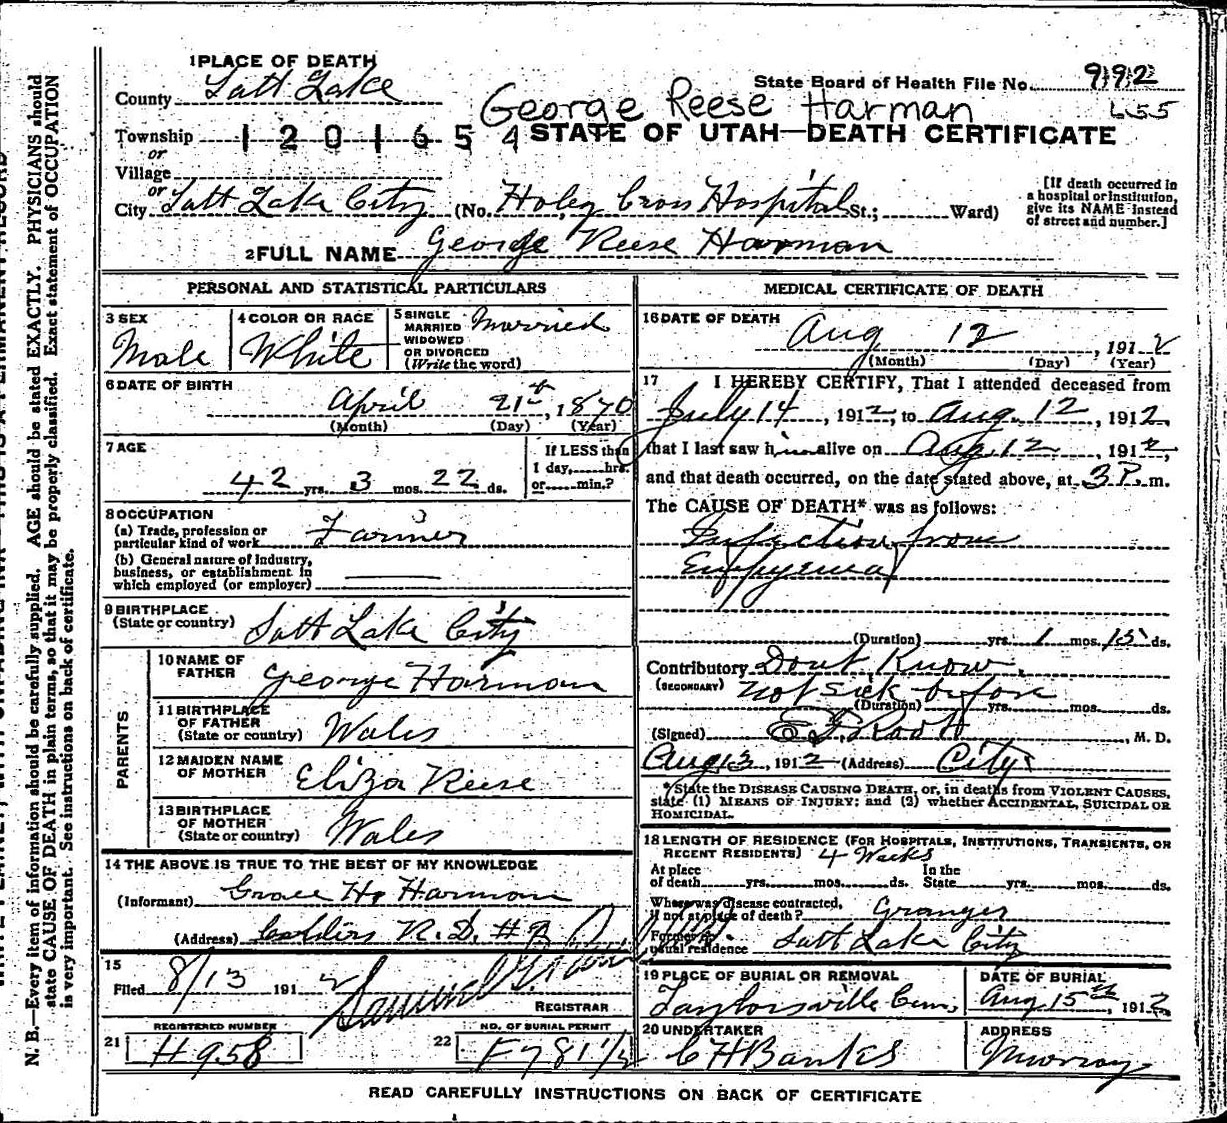 1 PLACE OF DEATH
State Board of Health File No. 992
County Salt Lake
George Reese Harman 655
Township 1201654 STATE OF UTAH—DEATH CERTIFICATE
or
Village
or
City Salt Lake City (No. Holy Cross Hospital St.; Ward)
[If death occurred in a hospital or institution, give its NAME instead of street and number.]
2 FULL NAME George Reese Harman
PERSONAL AND STATISTICAL PARTICULARS
3 SEX Male
4 COLOR OR RACE White
5 SINGLE MARRIED WIDOWED OR DIVORCED (Write the word) Married
6 DATE OF BIRTH
April 21st, 1870
(Month) (Day) (Year)
7 AGE
42 yrs. 3 mos. 22 ds.
If LESS than 1 day, hrs. or min.?
8 OCCUPATION
(a) Trade, profession or particular kind of work Farmer
(b) General nature of Industry, business, or establishment in which employed (or employer)
9 BIRTHPLACE
(State or country) Salt Lake City
PARENTS
10 NAME OF FATHER George Harman
11 BIRTHPLACE OF FATHER (State or country) Wales
12 MAIDEN NAME OF MOTHER Eliza Reese
13 BIRTHPLACE OF MOTHER (State or country) Wales
14 THE ABOVE IS TRUE TO THE BEST OF MY KNOWLEDGE
(Informant) Grace H. Harman
(Address) R.D. #
15
Filed 8/13 1912
REGISTRAR
REGISTERED NUMBER
21 H958
NO. OF BURIAL PERMIT
22 F781½
MEDICAL CERTIFICATE OF DEATH
16 DATE OF DEATH
Aug 12, 1912
(Month) (Day) (Year)
17 I HEREBY CERTIFY, That I attended deceased from
July 14, 1912, to Aug. 12, 1912,
that I last saw him alive on Aug. 12, 1912,
and that death occurred, on the date stated above, at 3 P. m.
The CAUSE OF DEATH* was as follows:
Infection from
Empyema
(Duration) yrs. 1 mos. 15 ds.
Contributory Dont Know.
(SECONDARY) not sick before
(Duration) yrs. mos. ds.
(Signed) E. G. Root, M. D.
Aug 13, 1912 (Address) City
*State the DISEASE CAUSING DEATH, or, in deaths from VIOLENT CAUSES, state (1) MEANS OF INJURY; and (2) whether ACCIDENTAL, SUICIDAL OR HOMICIDAL.
18 LENGTH OF RESIDENCE (FOR HOSPITALS, INSTITUTIONS, TRANSIENTS, OR RECENT RESIDENTS) 4 Weeks
At place of death yrs. mos. ds. In the State yrs. mos. ds.
Where was disease contracted, if not at place of death? Granger
Former or usual residence Salt Lake City
19 PLACE OF BURIAL OR REMOVAL
Taylorsville Cem.
DATE OF BURIAL
Aug 15th, 1912
20 UNDERTAKER
C H Banks
ADDRESS
Murray
READ CAREFULLY INSTRUCTIONS ON BACK OF CERTIFICATE
N. B.—Every item of information should be carefully supplied. AGE should be stated EXACTLY. PHYSICIANS should
state CAUSE OF DEATH in plain terms, so that it may be properly classified. Exact statement of OCCUPATION
is very important. See instructions on back of certificate.